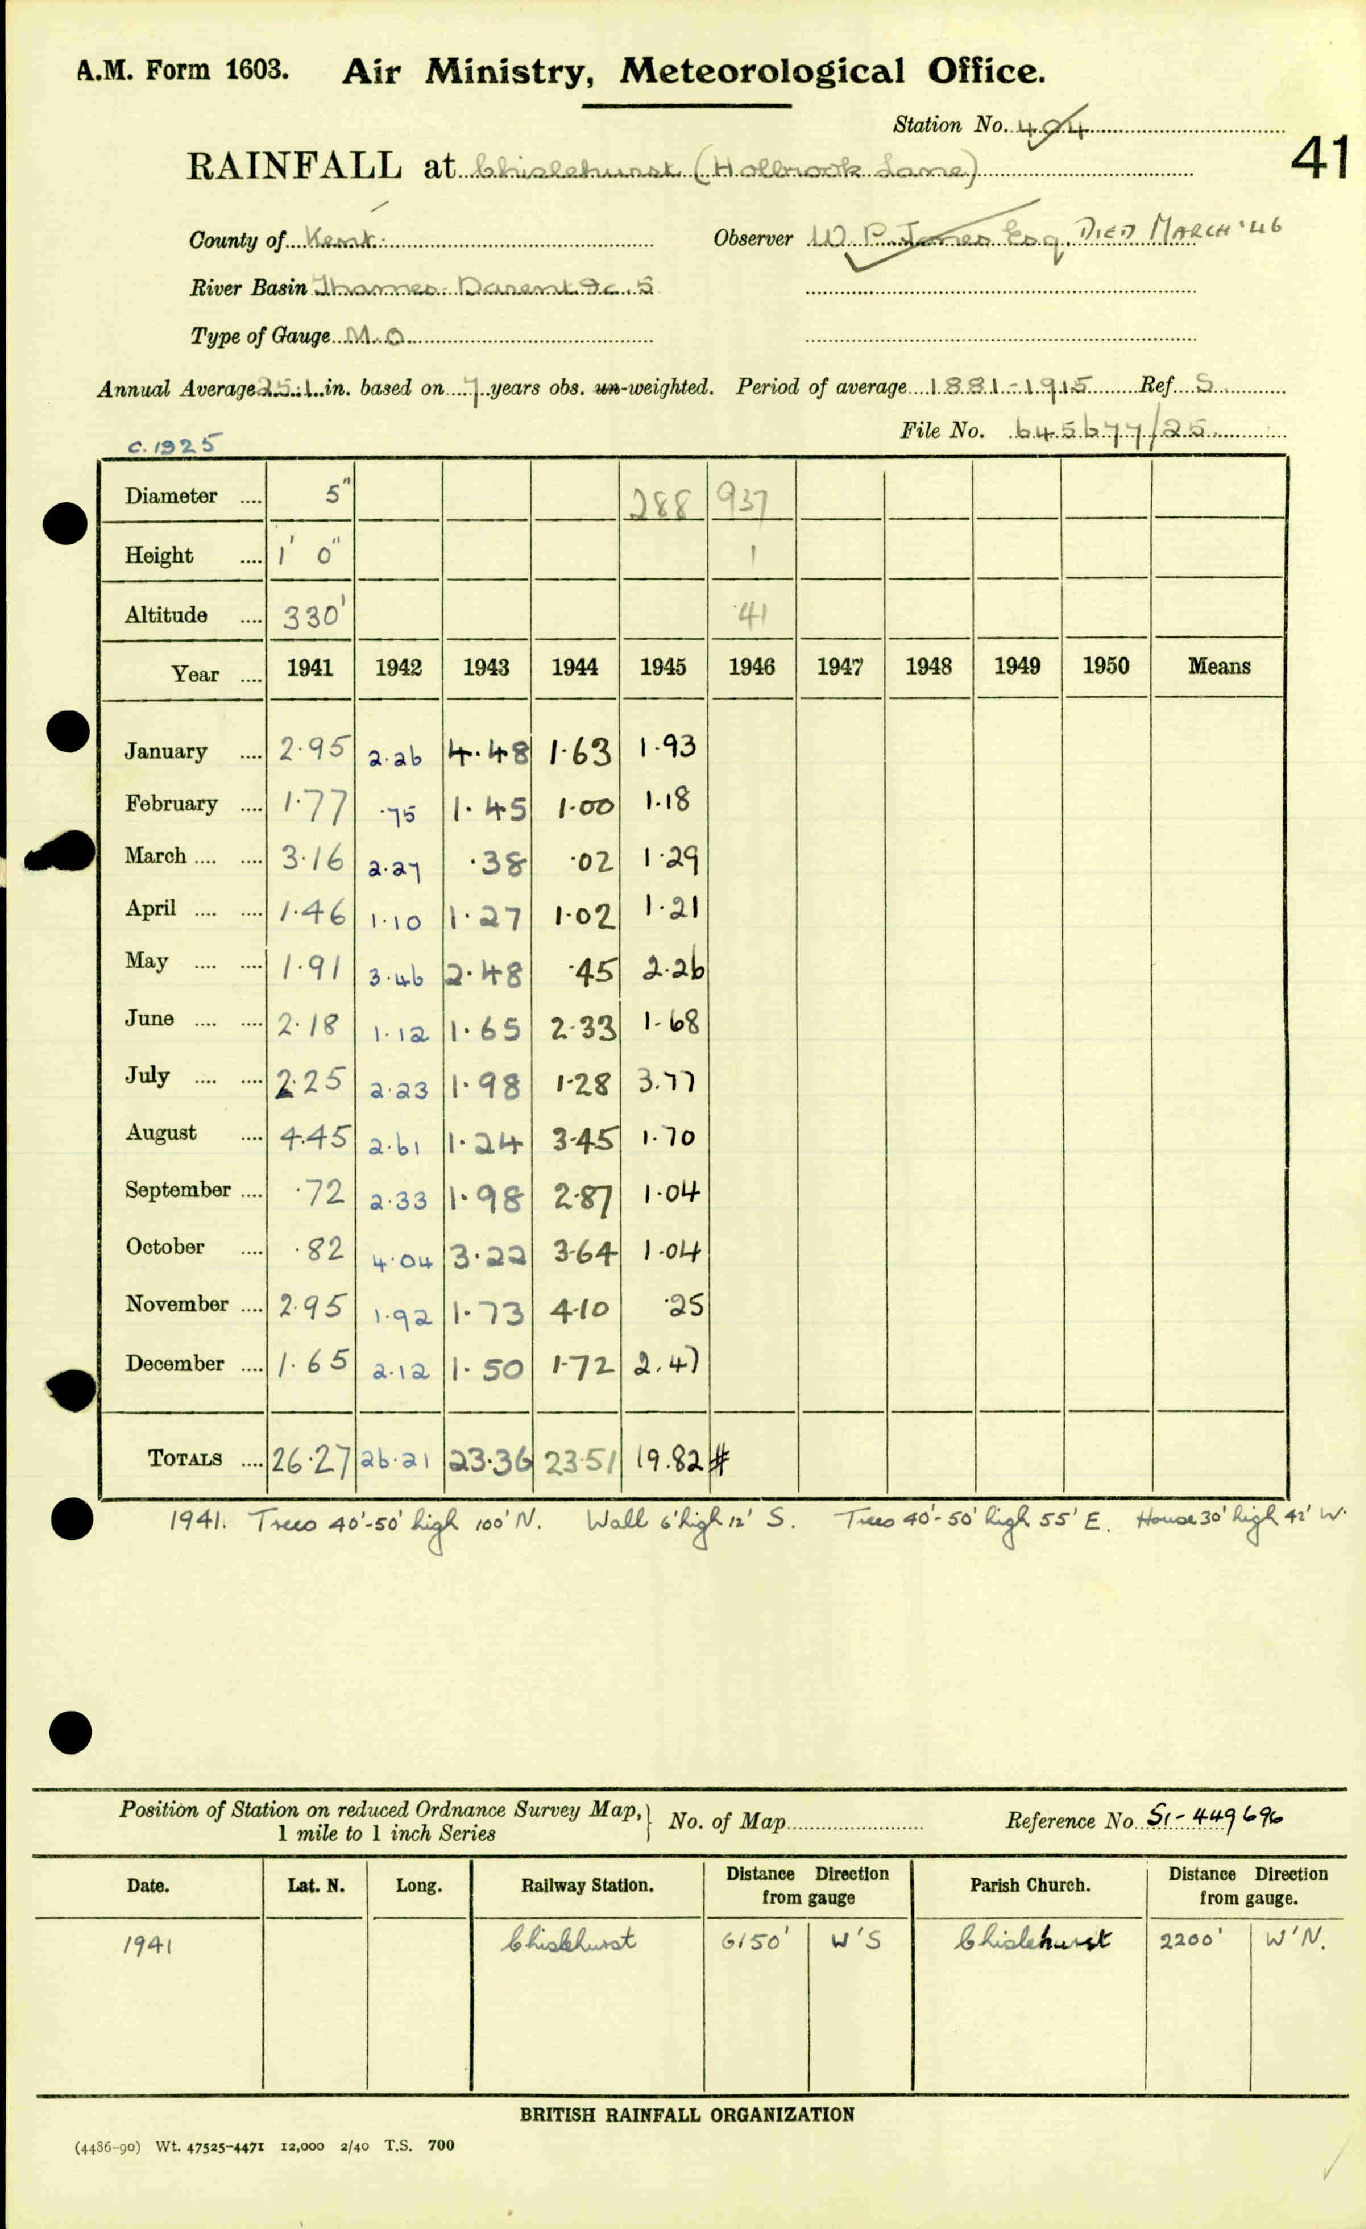 A.M. Form 1603. Air Ministry, Meteorological Office.
Station No. 494
41
RAINFALL at Chislehurst (Holbrook Lane)
County of Kent. Observer W. P. Jones Esq. DIED MARCH '46
River Basin Thames Darent &c. 5
Type of Gauge M.O.
Annual Average 25.1 in. based on 7 years obs. un-weighted. Period of average 1881-1915 Ref S.
File No. 645677/25
C.1925
Diameter .... 5" 288 937
Height .... 1' 0" 1
Altitude .... 330' 41
Year .... 1941 1942 1943 1944 1945 1946 1947 1948 1949 1950 Means
January .... 2.95 2.26 4.48 1.63 1.93
February .... 1.77 .75 1.45 1.00 1.18
March .... .... 3.16 2.27 .38 .02 1.29
April .... .... 1.46 1.10 1.27 1.02 1.21
May .... .... 1.91 3.46 2.48 .45 2.26
June .... .... 2.18 1.12 1.65 2.33 1.68
July .... .... 2.25 2.23 1.98 1.28 3.77
August .... 4.45 2.61 1.24 3.45 1.70
September .... .72 2.33 1.98 2.87 1.04
October .... .82 4.04 3.22 3.64 1.04
November .... 2.95 1.92 1.73 4.10 .25
December .... 1.65 2.12 1.50 1.72 2.47
TOTALS .... 26.27 26.21 23.36 23.51 19.82 #
1941. Trees 40'-50' high 100' N. Wall 6' high 12' S. Trees 40'-50' high 55' E. House 30' high 42' W.
Position of Station on reduced Ordnance Survey Map, 1 mile to 1 inch Series } No. of Map Reference No. 51-449696
Date. Lat. N. Long. Railway Station. Distance Direction from gauge Parish Church. Distance Direction from gauge.
1941 Chislehurst 6150' W'S Chislehurst 2200' W'N.
BRITISH RAINFALL ORGANIZATION
(4486-90) Wt. 47525-4471 12,000 2/40 T.S. 700